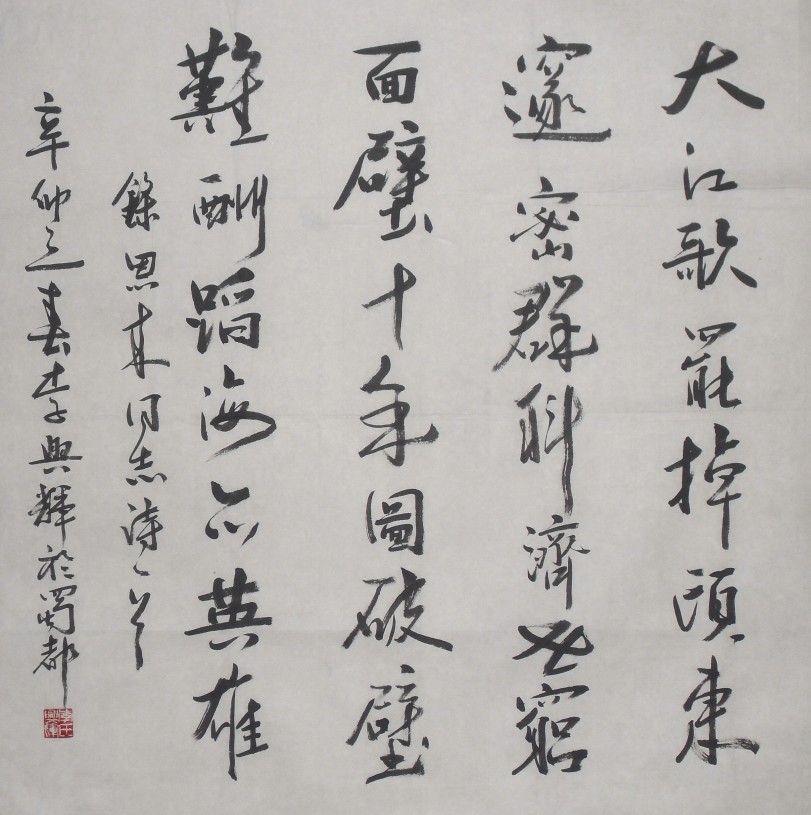 大江歌罷掉頭東
邃密群科濟世窮
面壁十年圖破壁
難酬蹈海亦英雄
錄恩來同志詩一首
辛卯之春李興輝於蜀都